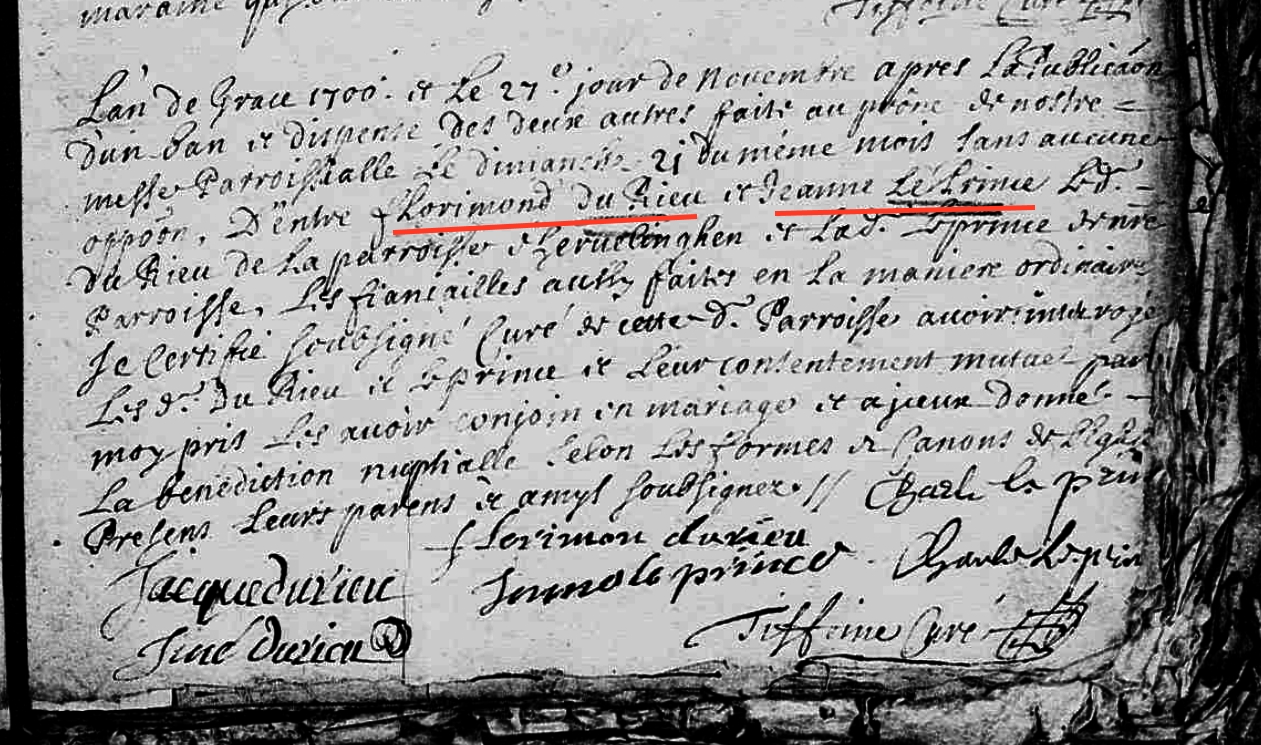 maraine
Tiffeine Curé
Lan de Grace 1700. et Le 27.e jour de Novembre apres La Publicãon
dun ban et dispense des deux autres faits au prône de nostre =
messe Parroissialle Le dimanche 21 du même mois sans aucune
oppõon, D'entre fLorimond du Rieu et Jeanne Le Prince Led. -
du Rieu de La parroisse d'hervelinghen et Lad. Leprince de nre
Parroisse, Les fiancailles aussy faites en La maniere ordinaire
Je Certifie soubsigné Curé de cette d. Parroisse avoir interrojé
Les d. Du Rieu et Leprince et Leur contentement mutuel par
moy pris Les avoir conjoin en mariage et a jceux donné -
La benediction nuptialle selon Les formes et Canons de L'Eglise
Presens Leurs parens et amys soubsignez // Charle le prin
florimon durieu
Jacque durieu Jenne le prince Charle Leprin
durieu Tiffeine Curé